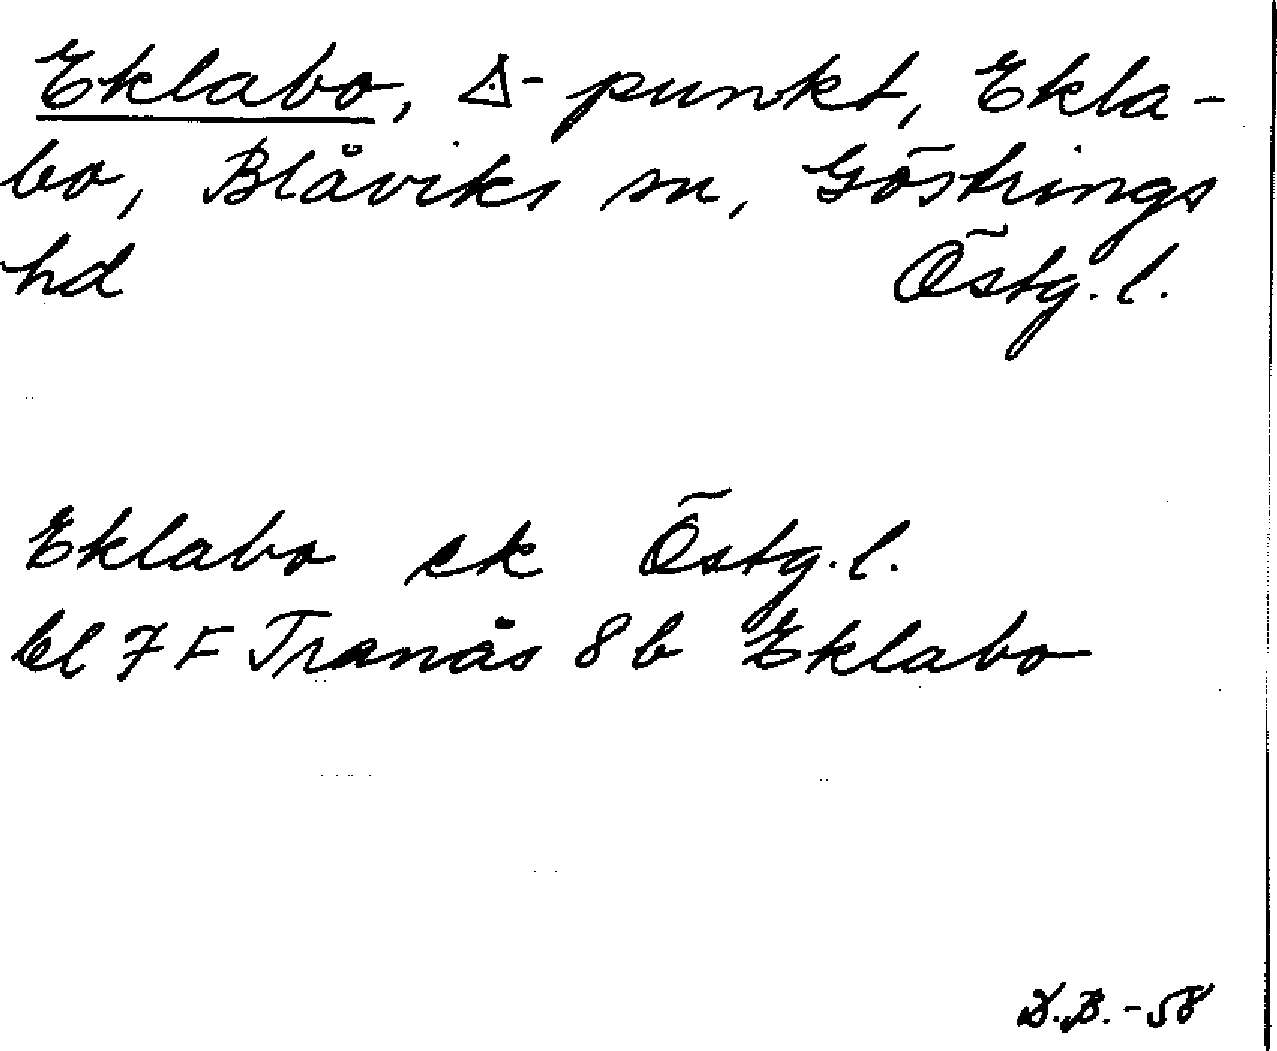 Eklabo, △-punkt, Ekla-
bo, Blåviks sn, Göstrings
hd Östg. l.
Eklabo ek Östg. l.
bl 7 F Tranås 8 b Eklabo
D.B. -58